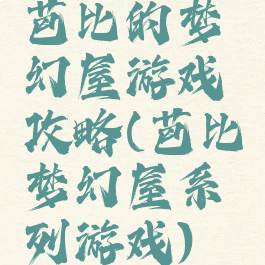 芭比的梦
幻屋游戏
攻略(芭比
梦幻屋系
列游戏)